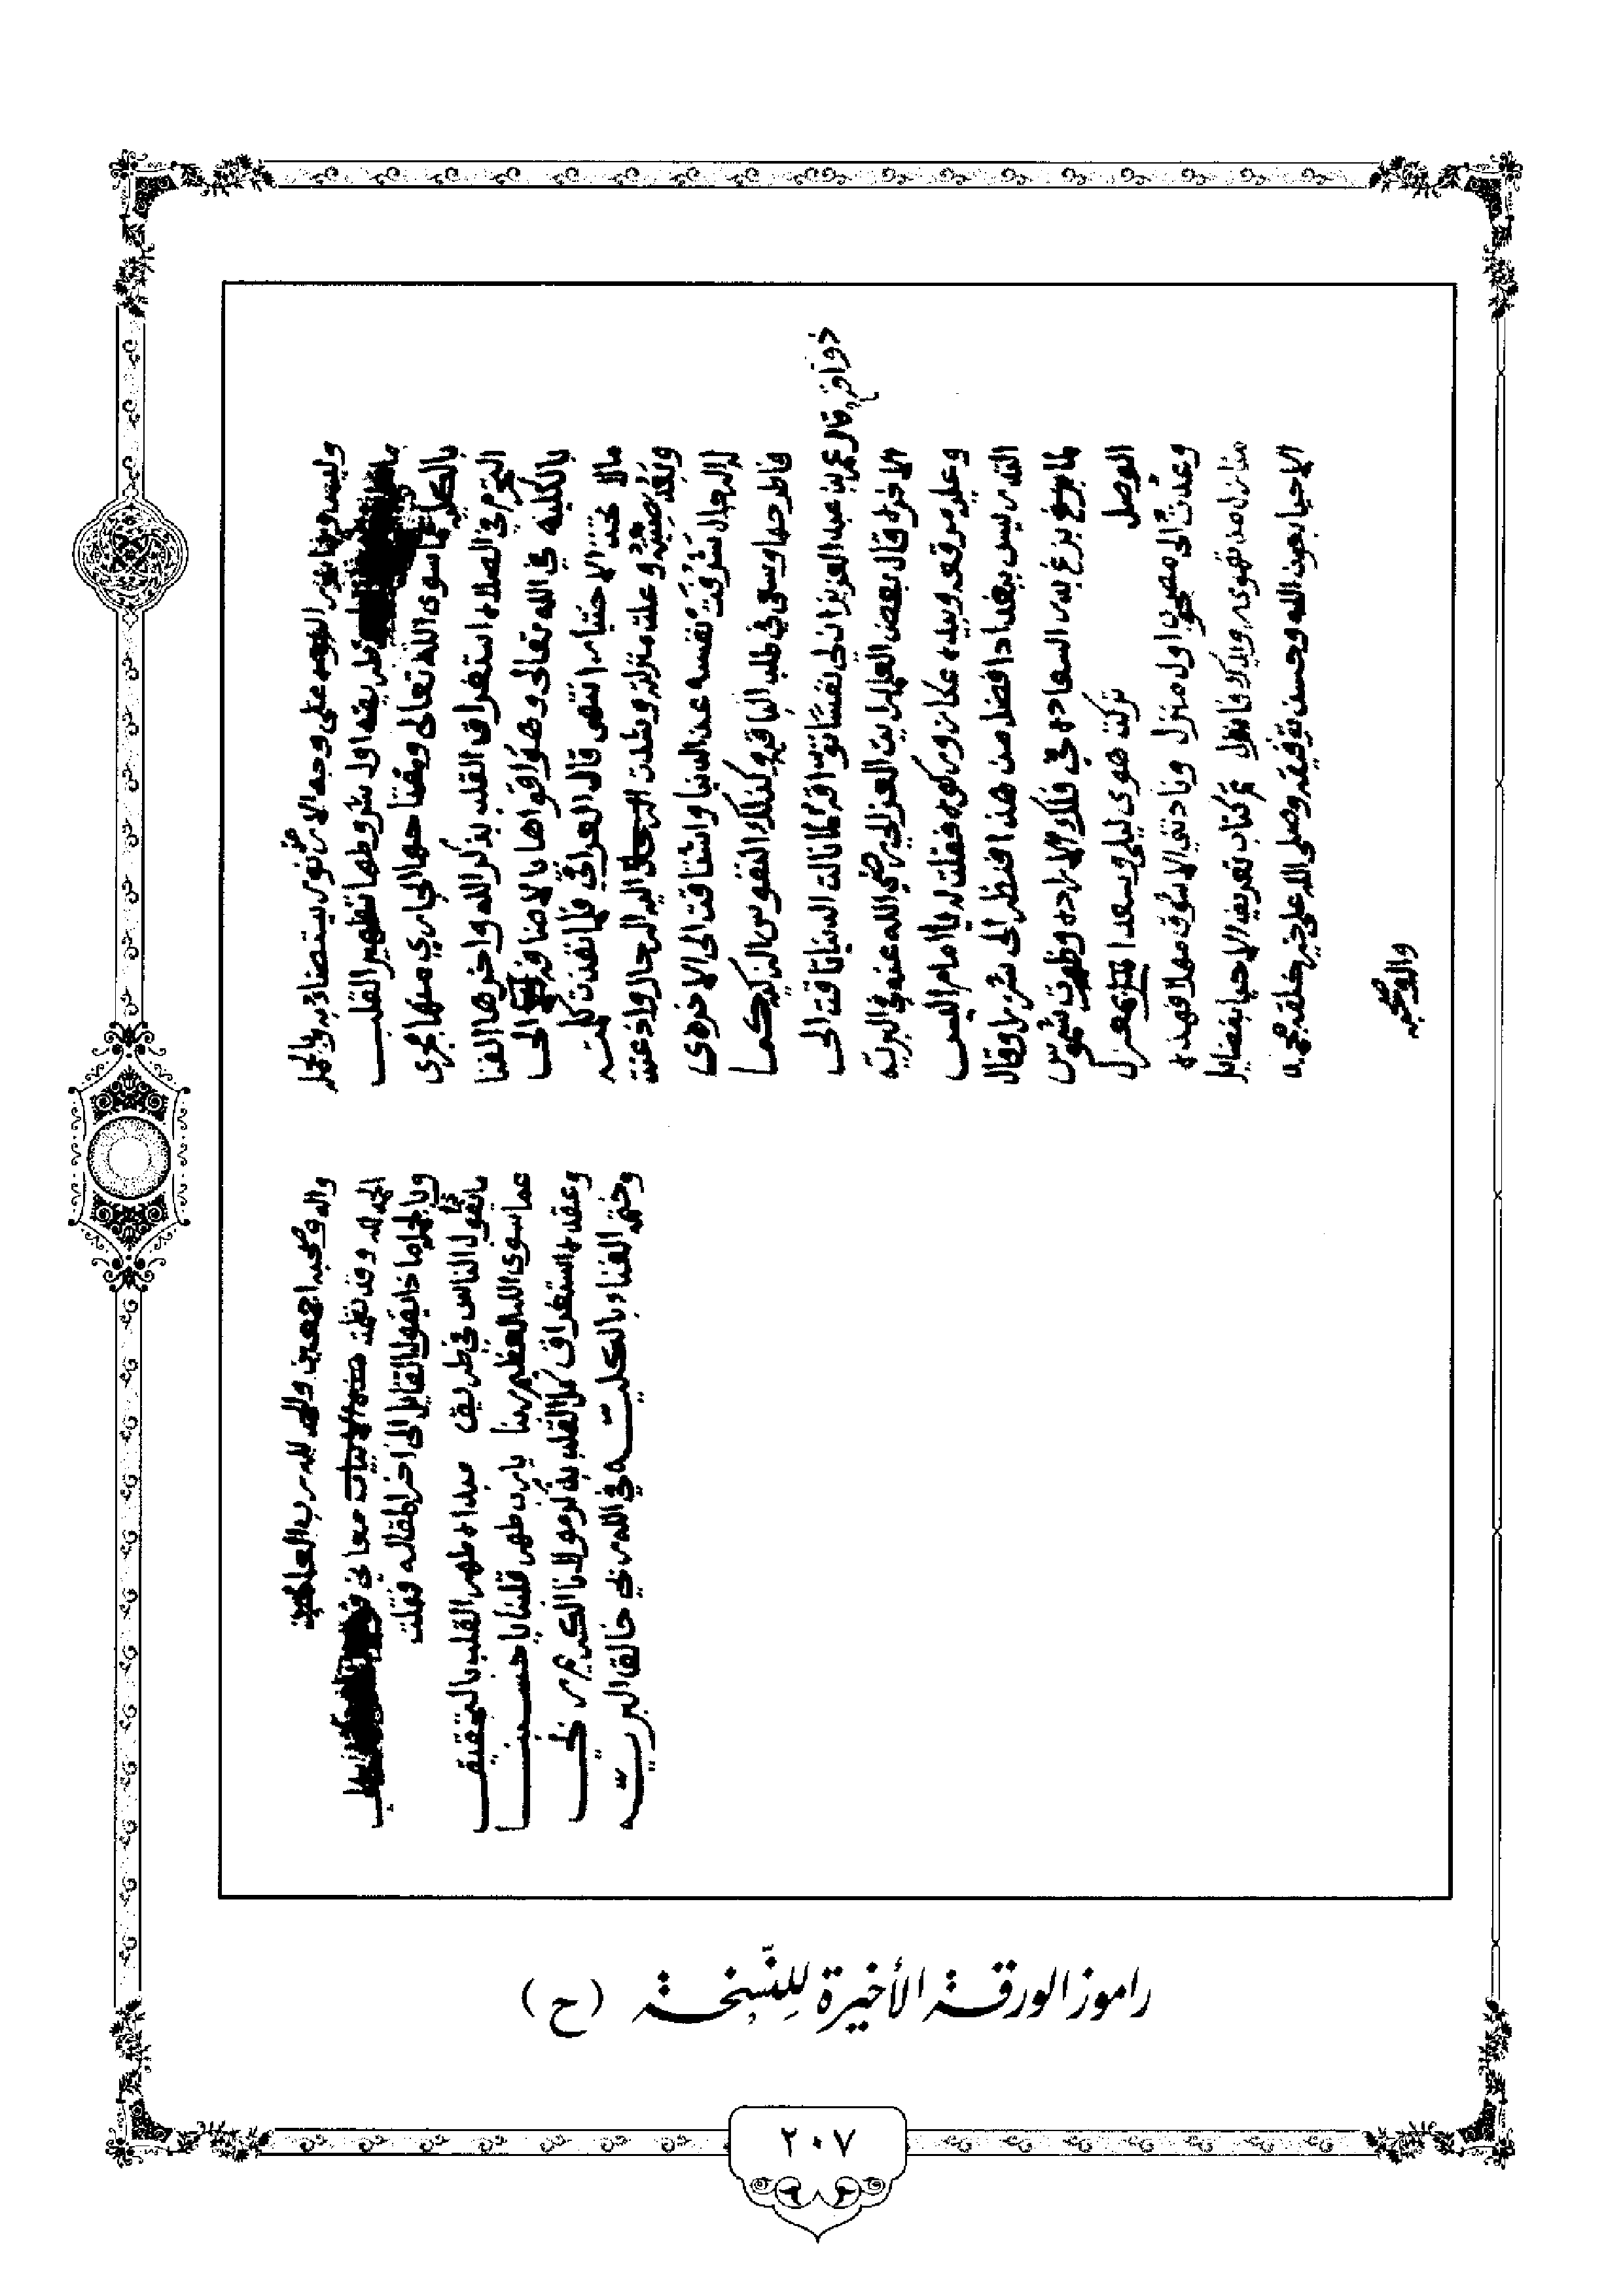 وليس وراء نور النبوة على وجه الارض نور يستضاء به وبالجملة
ماذا يقول القائل في طريقة اول شروطها تطهير القلب
بالكلية عما سوى الله تعالى ومفتاحها الجاري منها مجرى
التحرم في الصلاة استغراق القلب بذكر الله واخرها الفنا
بالكلية في الله تعالى وهو اقواها بالاضافة الى
ما لا تحت الاختيار انتهى قال العراقي فلما نفذت كلمته
وبعد صيته وعلت منزلته وشدت اليه الرحال واذعنت
له الرجال شرفت نفسه عن الدنيا واشتاقت الى الاخرى
فاطرحها وسعى في طلب الباقية وكذلك النفوس الزكية كما
قال عمر بن عبد العزيز ان لي نفسا تواقة لما نالت الدنيا تاقت الى
الاخرة قال بعض العلما رايت الغزالي رضي الله عنه في البرية
وعليه مرقعة وبيده عكاز وركوة فقلت له يا امام اليس
التدريس ببغداد افضل من هذا فنظر الي شزرا وقال
لما بزغ بدر السعادة في فلك الارادة وظهرت شموس
الوصل
تركت هوى ليلى وسعدا بمعزل
وعدت الى مصحوب اول منزل ونادتني الاشواق مهلا فهذه
منازل من تهوى رويدك فانزل تم كتاب تعريف الاحيا بفضايل
الاحيا بعون الله وحسن توفيقه وصلى الله على خير خلقه محمد
واله وصحبه
واله وصحبه اجمعين والحمد لله رب العالمين
الحمد لله وقد نظمت هذه الابيات معاني
وبالجملة ماذا يقول القايل الى اخر المقالة فقلت
ما يقول الناس في طريق مبداه طهر القلب بالتحقيق
عما سوى الله العظيم ربنا يا رب طهر قلبنا يا حسبنا
وعقده استغراق كل القلب بذكر مولانا الكريم ربي
وختمه الفناء بالكلية في الله ربي خالق البرية
راموز الورقة الأخيرة للنسخة (ح)
٢٠٧